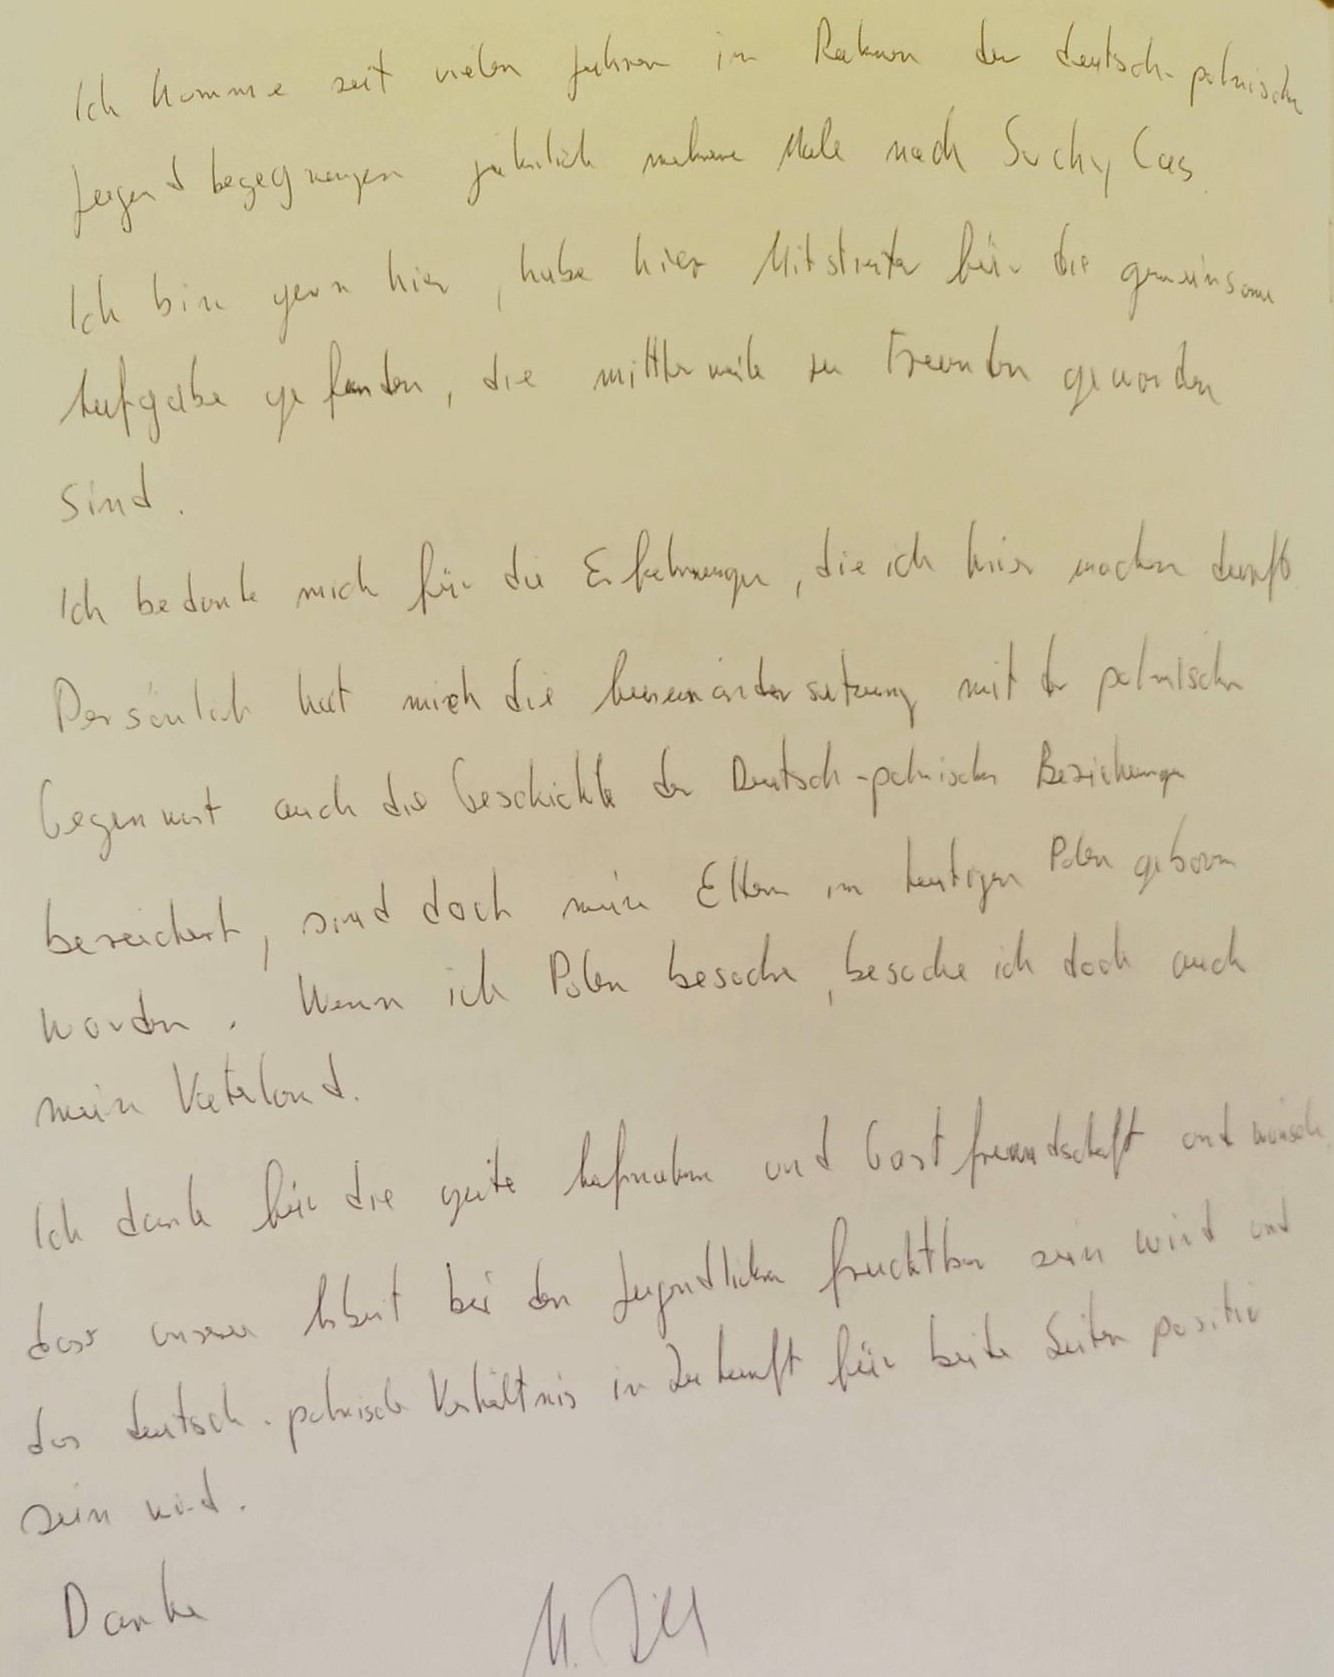 Ich komme seit vielen Jahren im Rahmen der deutsch-polnische
Jugendbegegnungen jährlich mehrere Male nach Suchy Las.
Ich bin gern hier, habe hier Mitstreiter für die gemeinsame
Aufgabe gefunden, die mittlerweile zu Freunden geworden
sind.
Ich bedanke mich für die Erfahrungen, die ich hier machen durfte
Persönlich hat mich die Auseinandersetzung mit der polnischen
Gegenwart auch die Geschichte der Deutsch-polnischen Beziehungen
bereichert, sind doch meine Eltern im heutigen Polen geboren
worden. Wenn ich Polen besuche, besuche ich doch auch
mein Vaterland.
Ich danke für die gute Aufnahme und Gastfreundschaft und wünsche
dass unsere Arbeit bei den Jugendlichen fruchtbar sein wird und
das deutsch-polnische Verhältnis in Zukunft für beide Seiten positiv
sein wird.
Danke